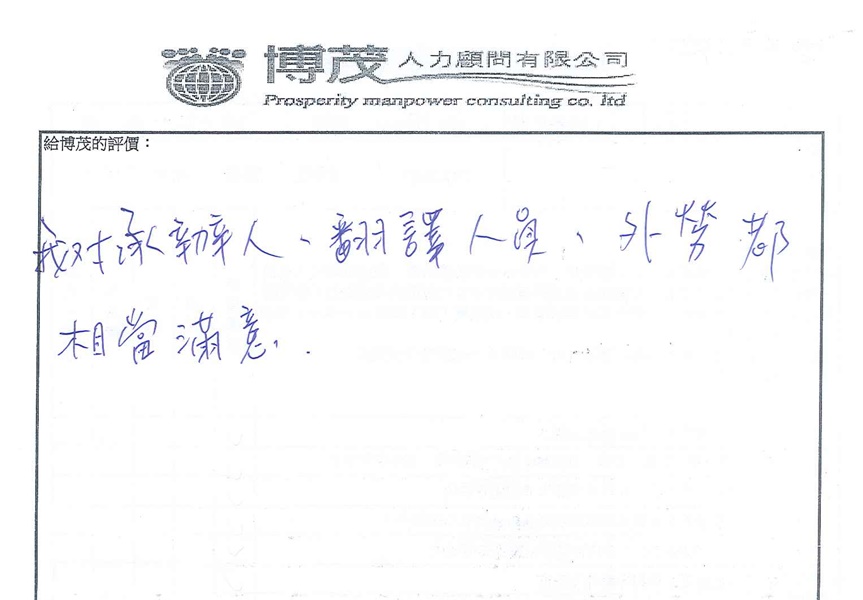 博茂人力顧問有限公司
Prosperity manpower consulting co. ltd
給博茂的評價：
我对承辦人、翻譯人員、外勞都
相當滿意.